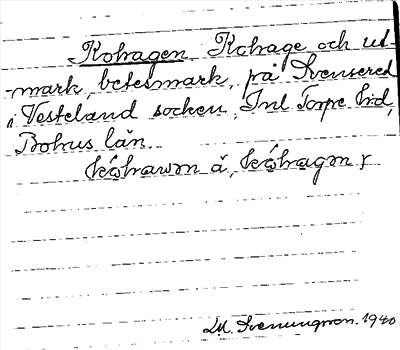 Kohagen. Kohage och ut-
mark, betesmark, på Svensered
i Vesteland socken, Inl. Torpe hd,
Bohus län.
kóhawm å, kóhagm ɣ
M. Svenungsson. 1940